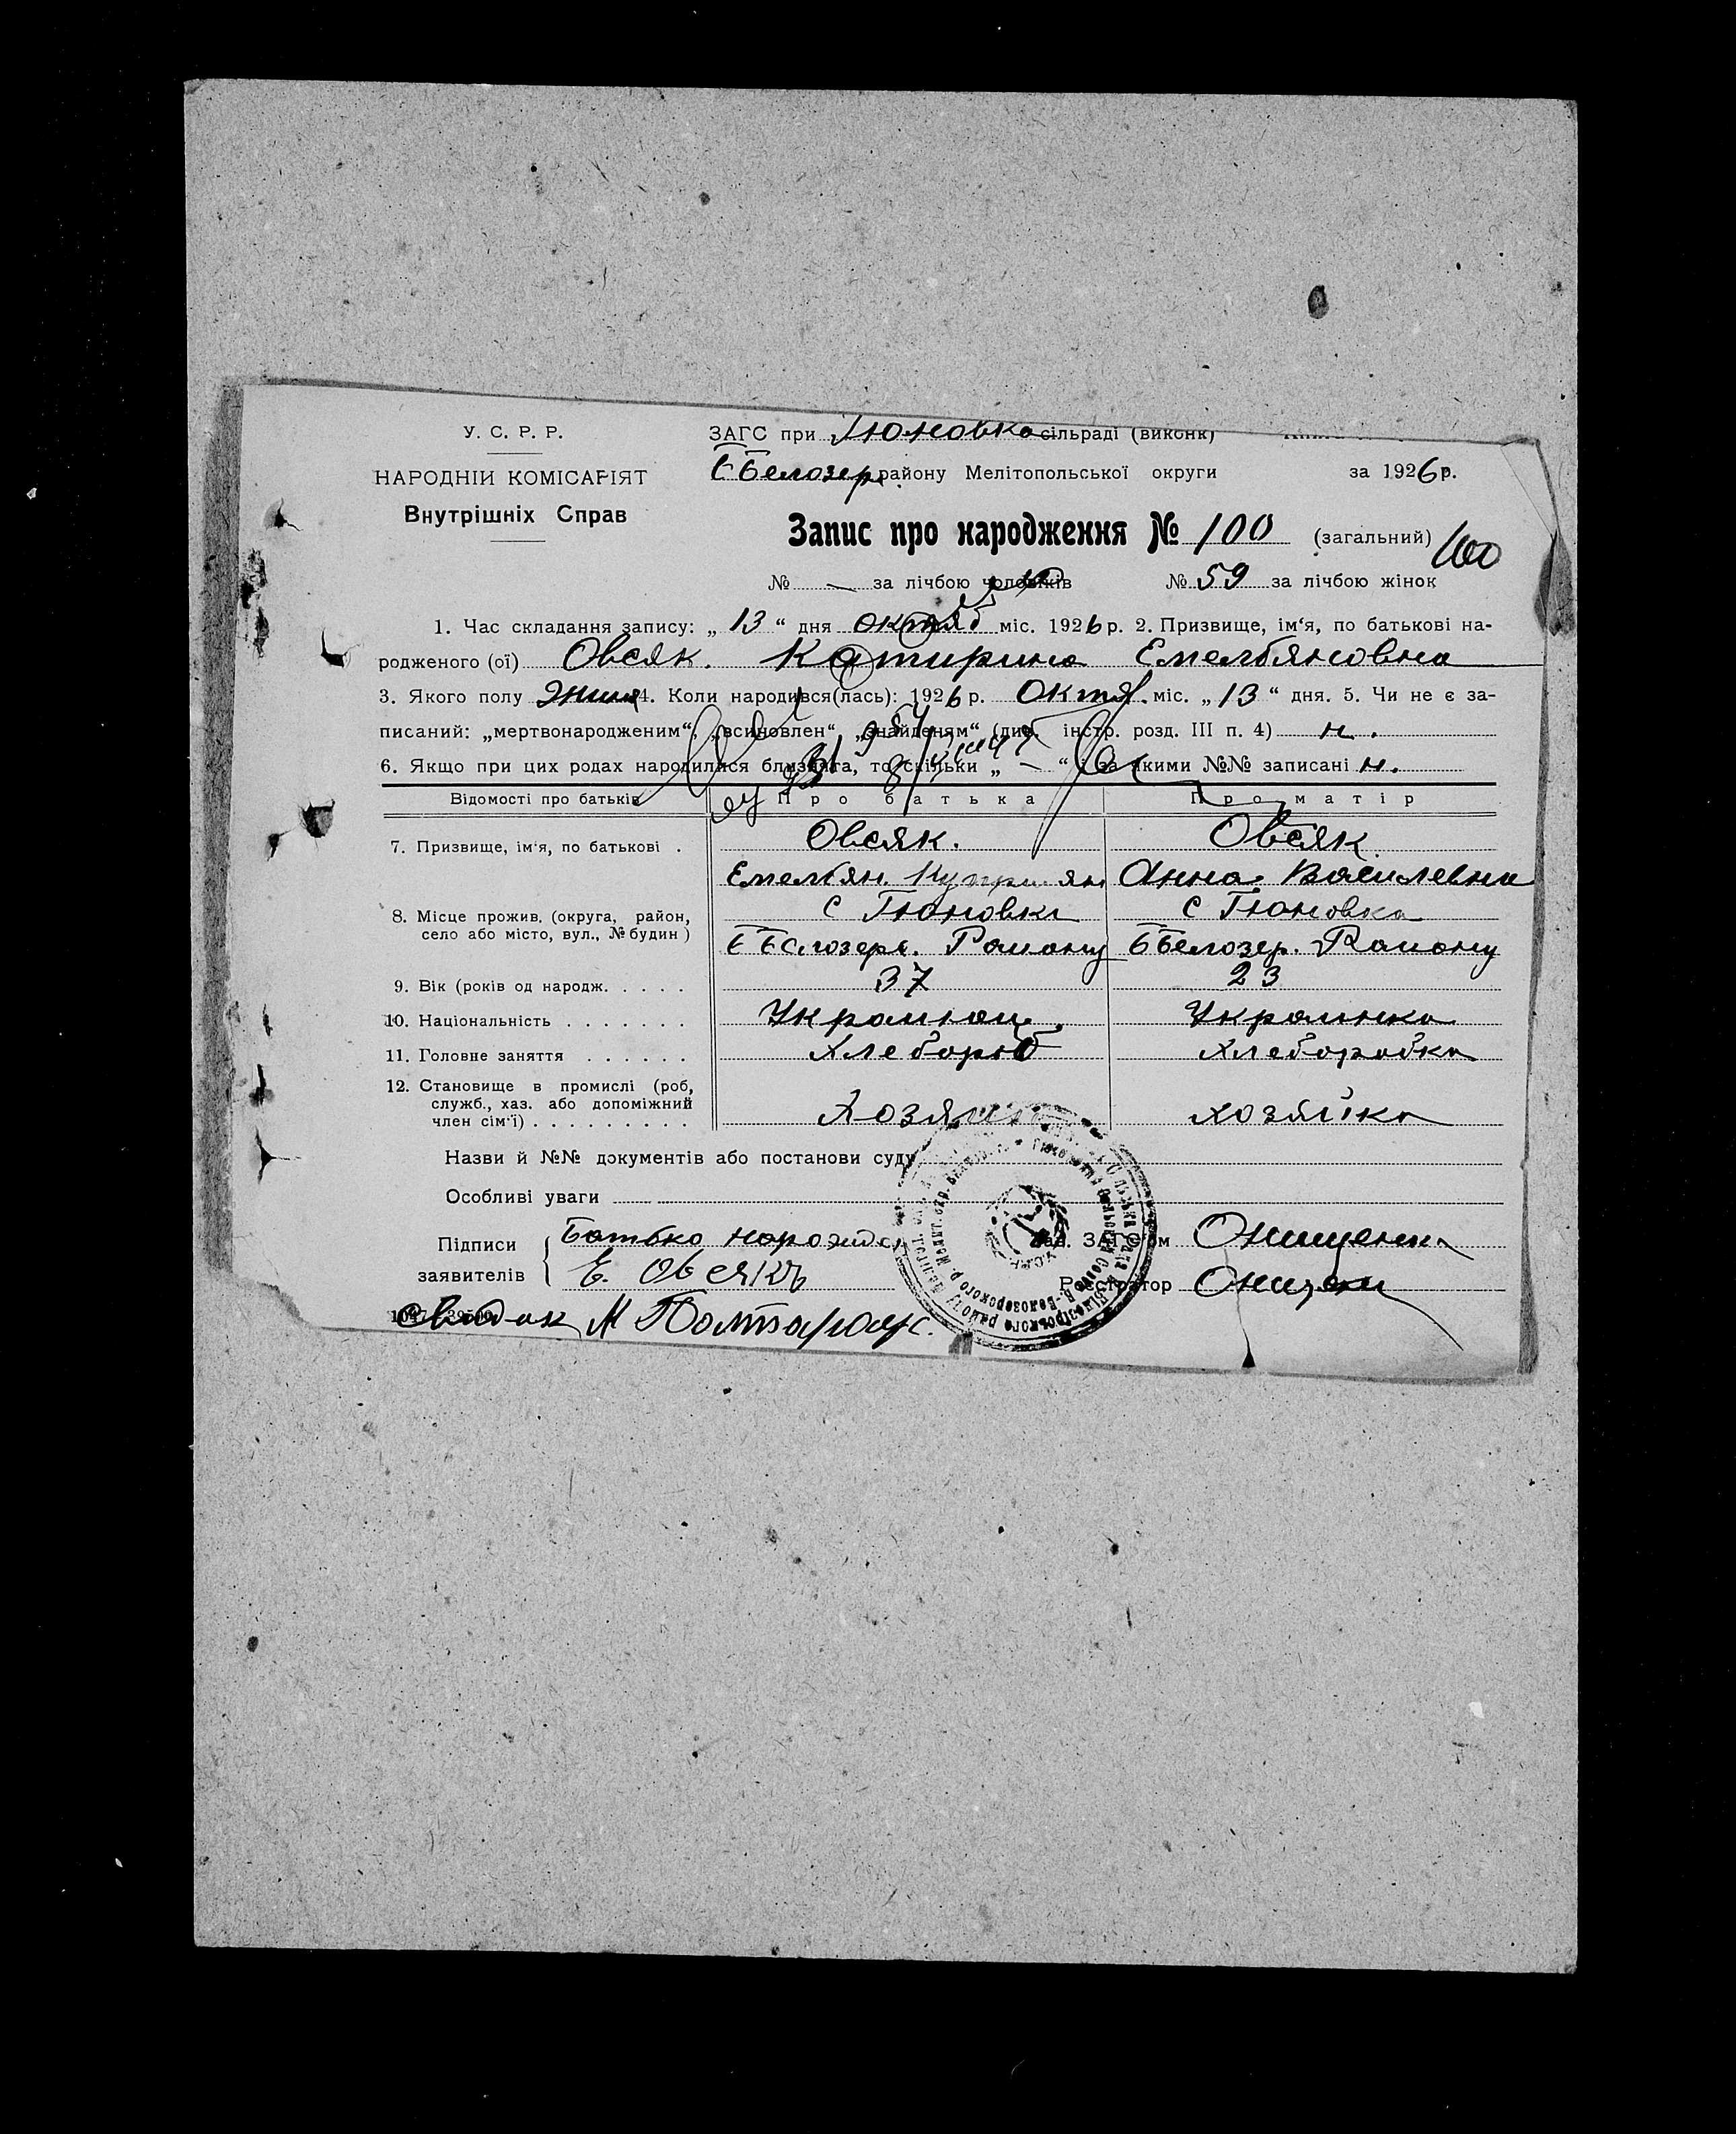 У. С. Р. Р.
НАРОДНІЙ КОМІСАРІЯТ
Внутрішніх Справ
ЗАГС при Тюновка сільраді (виконк)
ББелозер. району Мелітопольської округи за 1926 р.
Запис про народження № 100 (загальний) 100
№ — за лічбою чоловіків № 59 за лічбою жінок
1. Час складання запису: „ 13 “ дня октяб міс. 1926 р. 2. Призвище, ім‘я, по батькові на-
родженого (ої) Овсяк. Катирина Емельяновна
3. Якого полу 4. Коли народився(лась): 1926 р. Октя. міс. „ 13 “ дня. 5. Чи не є за-
писаний: „мертвонародженим“, „всиновлен“ „знайденям“ (див. інстр. розд. III п. 4) н.
6. Якщо при цих родах народилися близнята, то скільки „ — “ і за якими №№ записані н.
Відомості про батьків Про батька Про матір
7. Призвище, ім‘я, по батькові . Овсяк. Овсяк
Емельян. Куприян Анна Василевна
8. Місце прожив. (округа, район, с Тюновки с Тюновка
село або місто, вул., № будин) ББелозерс. Районy ББелозер. Районy
9. Вік (років од народж. . . . . 37 23
10. Національність . . . . . . . Украинец Украинка
11. Головне заняття . . . . . . Хлебороб Хлеборобка
12. Становище в промислі (роб,
служб., хаз. або допоміжний
член сім‘ї) . . . . . . . . . Хозяин Хозяйка
Назви й №№ документів або постанови суду
Особливі уваги
Підписи Батько Зав. ЗАГС‘ом Онищенко
заявителів Е. Овсякъ Реєстратор
Свидок М